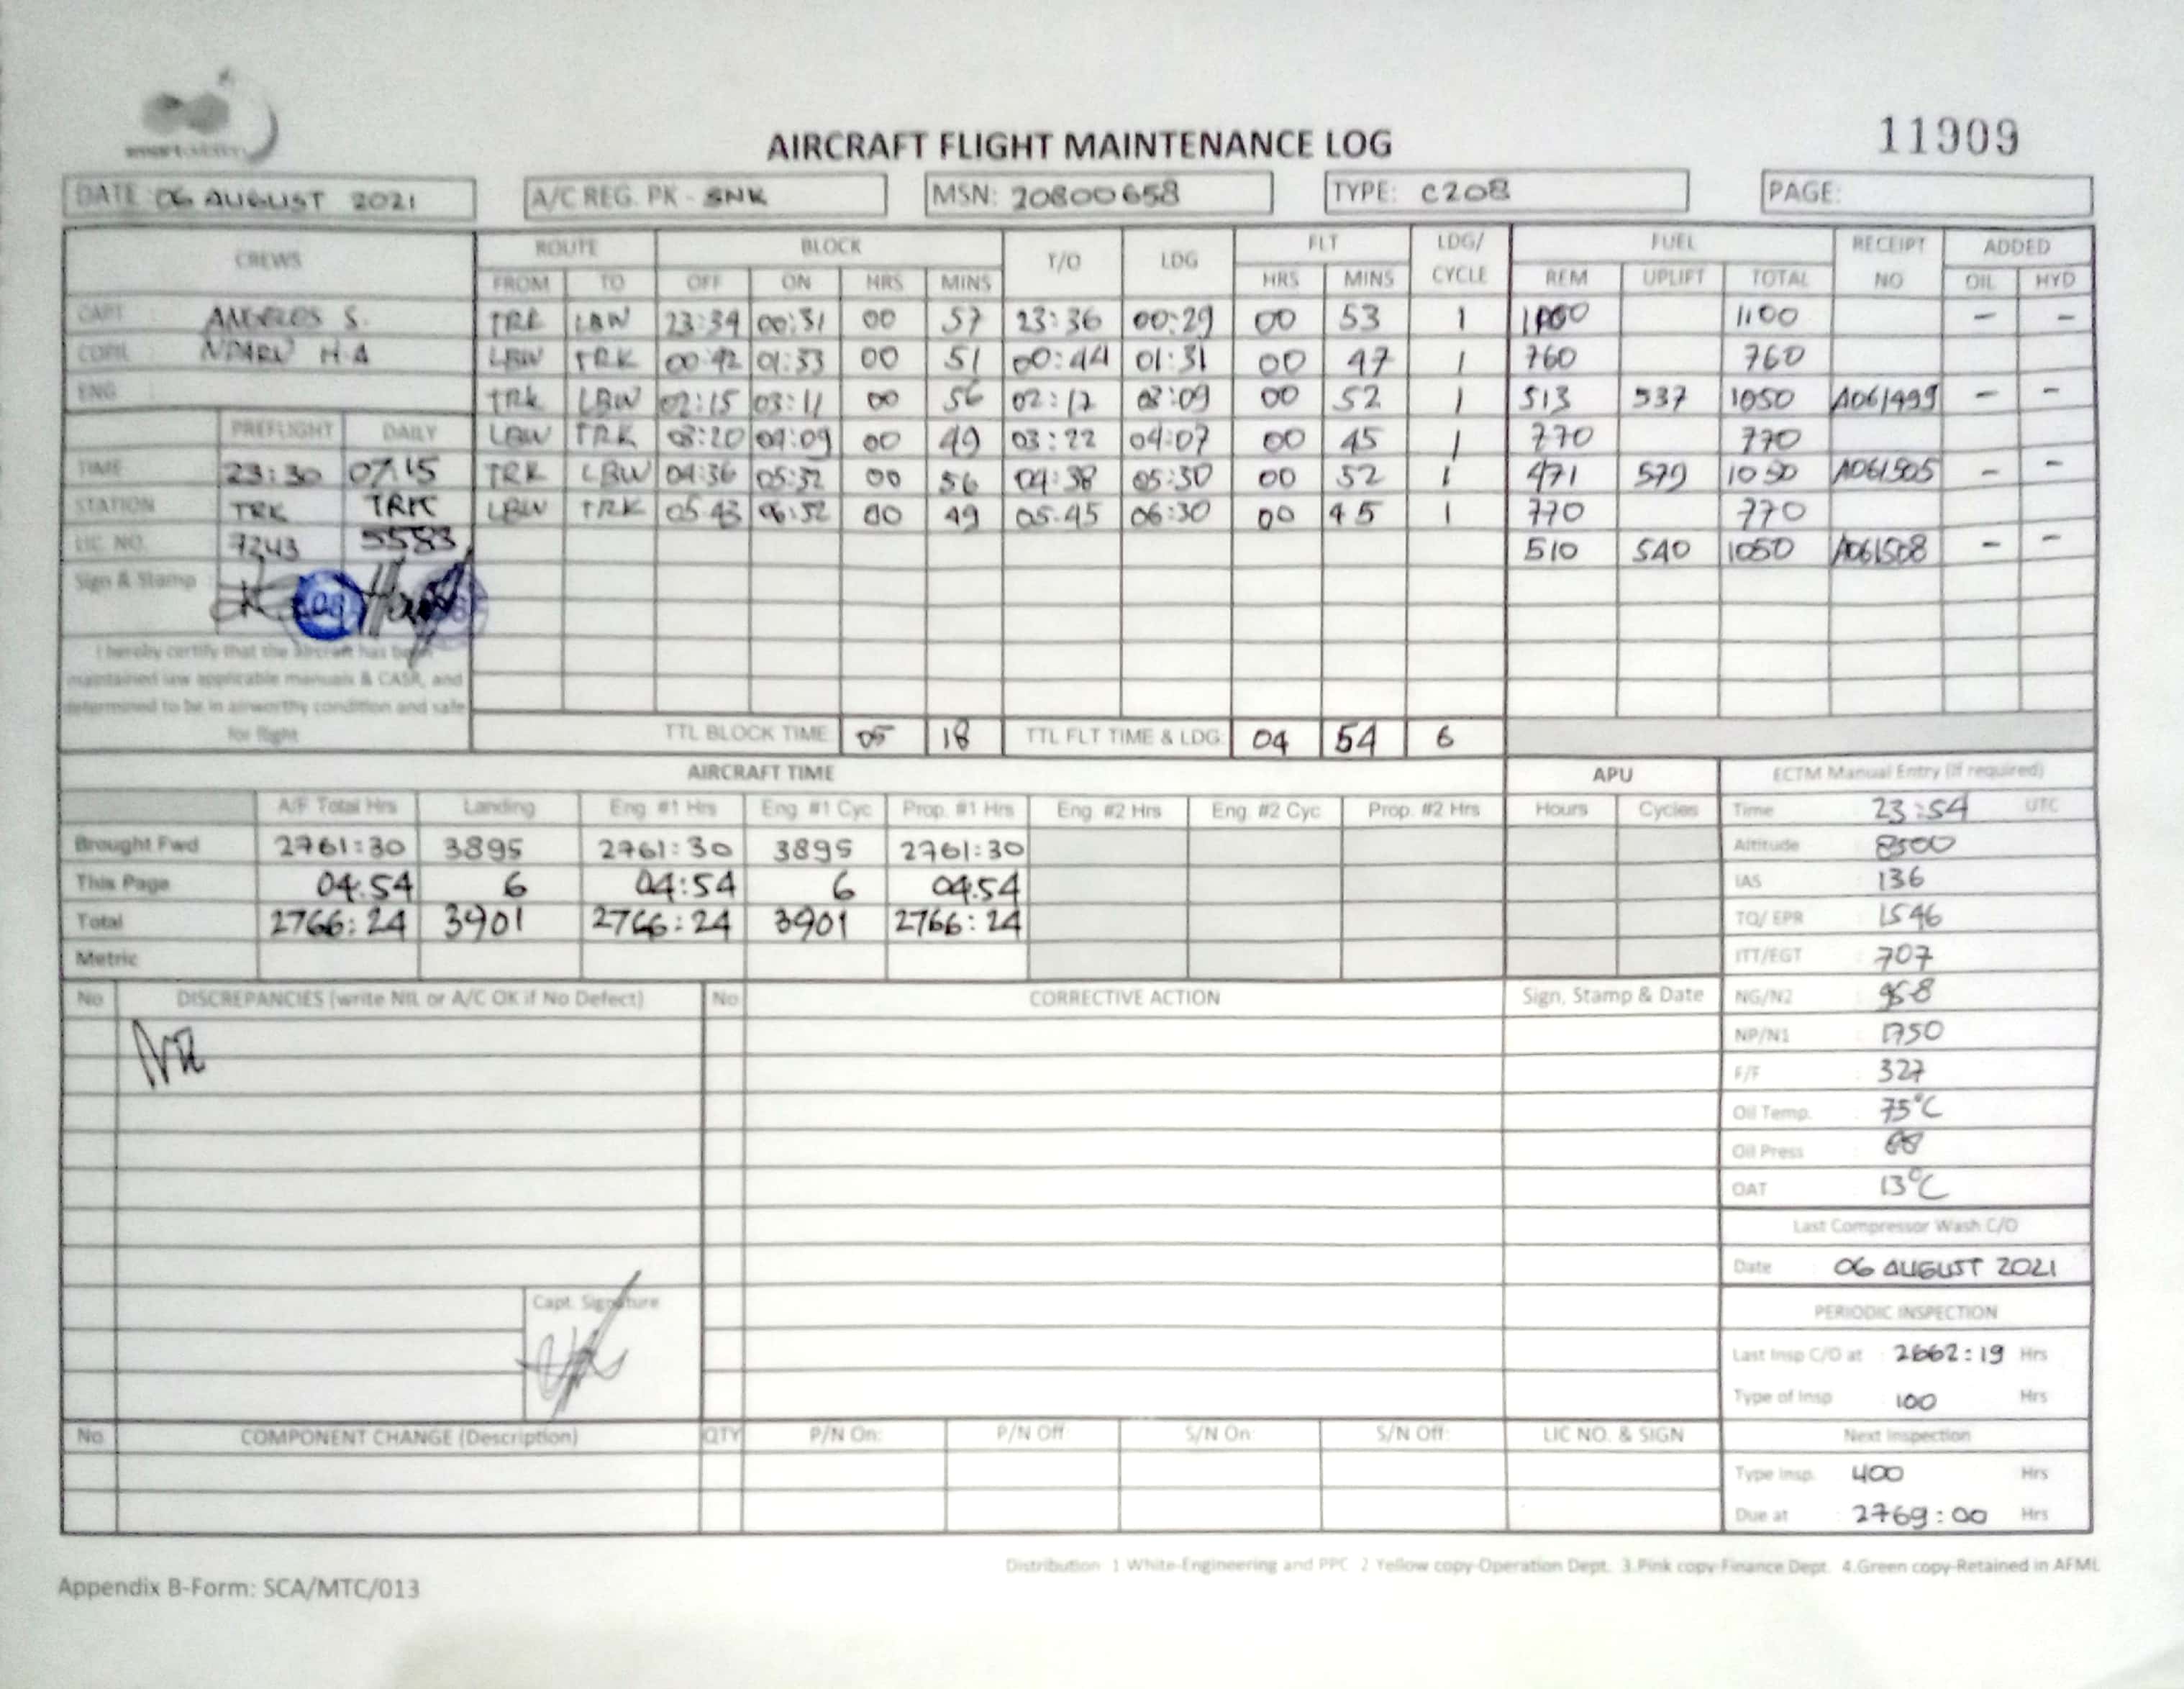 smart aviation
AIRCRAFT FLIGHT MAINTENANCE LOG
11909
DATE: 06 AUGUST 2021 A/C REG. PK - SNK MSN: 20800658 TYPE: C208 PAGE:
CREWS ROUTE BLOCK T/O LDG FLT LDG/ CYCLE FUEL RECEIPT NO ADDED
FROM TO OFF ON HRS MINS HRS MINS REM UPLIFT TOTAL OIL HYD
CAPT ANGELOS S. TRK LBW 23:34 00:31 00 57 23:36 00:29 00 53 1 1100 1100 - -
COPIL NDARU H.A LBW TRK 00:42 01:33 00 51 00:44 01:31 00 47 1 760 760
ENG TRK LBW 02:15 03:11 00 56 02:17 03:09 00 52 1 513 537 1050 A061499 - -
PREFLIGHT DAILY LBW TRK 03:20 04:09 00 49 03:22 04:07 00 45 1 770 770
TIME 23:30 07.15 TRK LBW 04:36 05:32 00 56 04:38 05:30 00 52 1 471 579 1050 A061505 - -
STATION TRK TRK LBW TRK 05.43 06:32 00 49 05.45 06:30 00 45 1 770 770
LIC NO. 7243 5583 510 540 1050 A061508 - -
Sign & Stamp
I hereby certify that the aircraft has been
maintained iaw applicable manuals & CASR, and
determined to be in airworthy condition and safe
for flight
TTL BLOCK TIME 05 18 TTL FLT TIME & LDG: 04 54 6
AIRCRAFT TIME APU ECTM Manual Entry (if required)
A/F Total Hrs Landing Eng. #1 Hrs Eng. #1 Cyc Prop. #1 Hrs Eng. #2 Hrs Eng. #2 Cyc Prop. #2 Hrs Hours Cycles Time 23:54 UTC
Brought Fwd 2761:30 3895 2761:30 3895 2761:30 Altitude 8500
This Page 04:54 6 04:54 6 04:54 IAS 136
Total 2766:24 3901 2766:24 3901 2766:24 TQ/ EPR 1546
Metric ITT/EGT 707
No DISCREPANCIES (write NIL or A/C OK if No Defect) No CORRECTIVE ACTION Sign, Stamp & Date NG/N2
NIL
NP/N1 1750
F/F 327
Oil Temp. 75°C
Oil Press 88
OAT 13°C
Last Compressor Wash C/O
Date 06 AUGUST 2021
Capt. Signature
PERIODIC INSPECTION
Last Insp C/O at : 2662:19 Hrs
Type of Insp 100 Hrs
No COMPONENT CHANGE (Description) QTY P/N On: P/N Off: S/N On: S/N Off: LIC NO. & SIGN Next Inspection
Type Insp. 400 Hrs
Due at : 2769:00 Hrs
Distribution 1 White-Engineering and PPC 2 Yellow copy-Operation Dept. 3.Pink copy-Finance Dept. 4.Green copy-Retained in AFML
Appendix B-Form: SCA/MTC/013